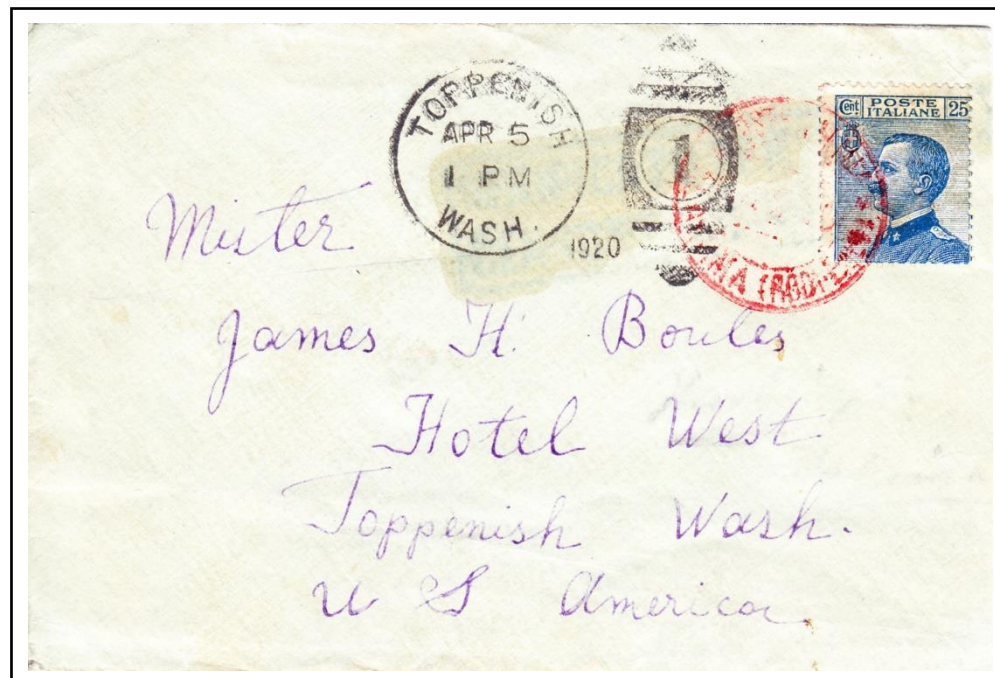 TOPPENISH
APR 5
1 PM
WASH.
1920
1
Cent POSTE ITALIANE 25
(RODI
Mister
James H. Boules
Hotel West
Toppenish Wash.
U S America